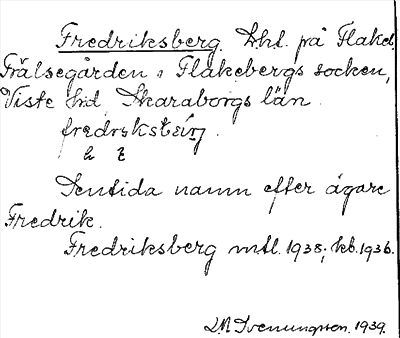 Fredriksberg. Lht. på Flakeb.
Frälsegården i Flakebergs socken,
Viste hd, Skaraborgs län.
Sentida namn efter ägare
Fredrik.
Fredriksberg mtl. 1938; kb. 1936.
1939.